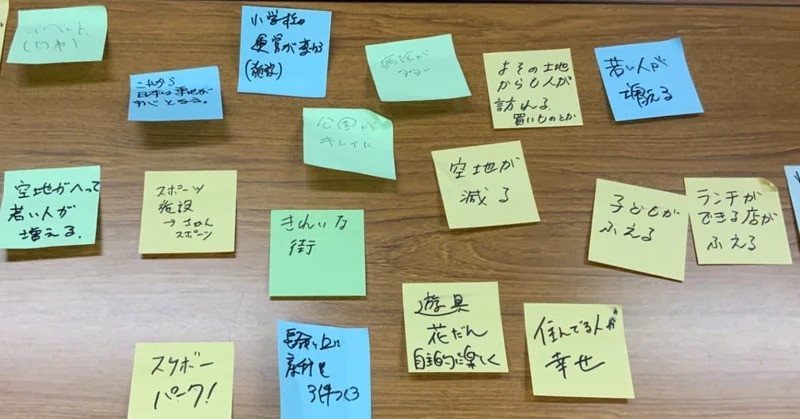 イベント
小学校の
運営が変わる
(施設)
これから
日本は
となる。
病院が
公園が
キレイに
よその土地
からも人が
訪れる
買いものとか
若い人が
増える
空地がへって
若い人が
増える。
スポーツ
施設
→
スポーツ
きれいな
街
空地が
減る
子どもが
ふえる
ランチが
できる店が
ふえる
スケボー
パーク!
遊具
花だん
自主的に楽しく
住んでる人が
幸せ